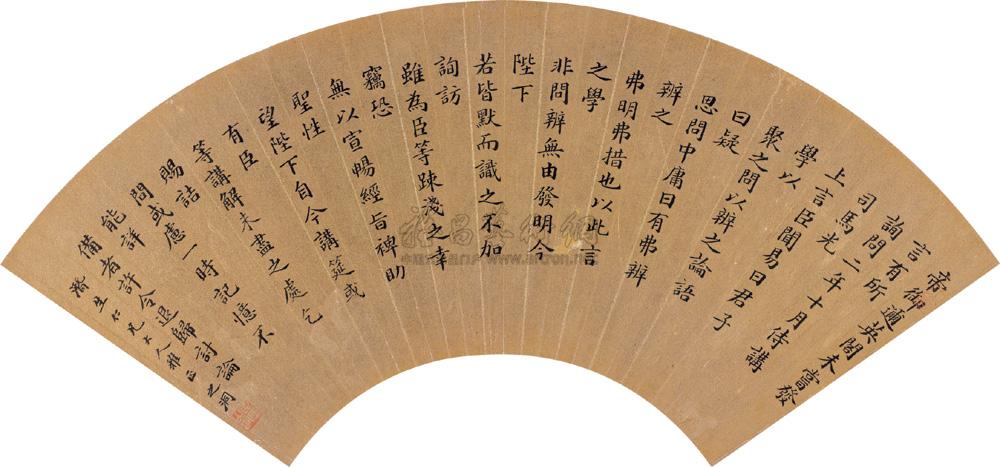 帝
御邇英閣未嘗發
言有所
詢問
司馬光二年十月侍講
上言
臣聞易曰君子
學以
聚之問以辨之論語
曰疑
思問中庸曰有弗辨
辨之
弗明弗措也以此言
之學
非問辨無由發明今
陛下
若皆默而識之不加
詢訪
雖為臣等疎淺之幸
竊恐
無以宣暢經旨裨助
聖性
望陛下自今講筵或
有臣
等講解未盡之處乞
賜詰
問或慮一時記憶不
能詳
備者許令退歸討論
濟生仁兄大人雅正 之洞